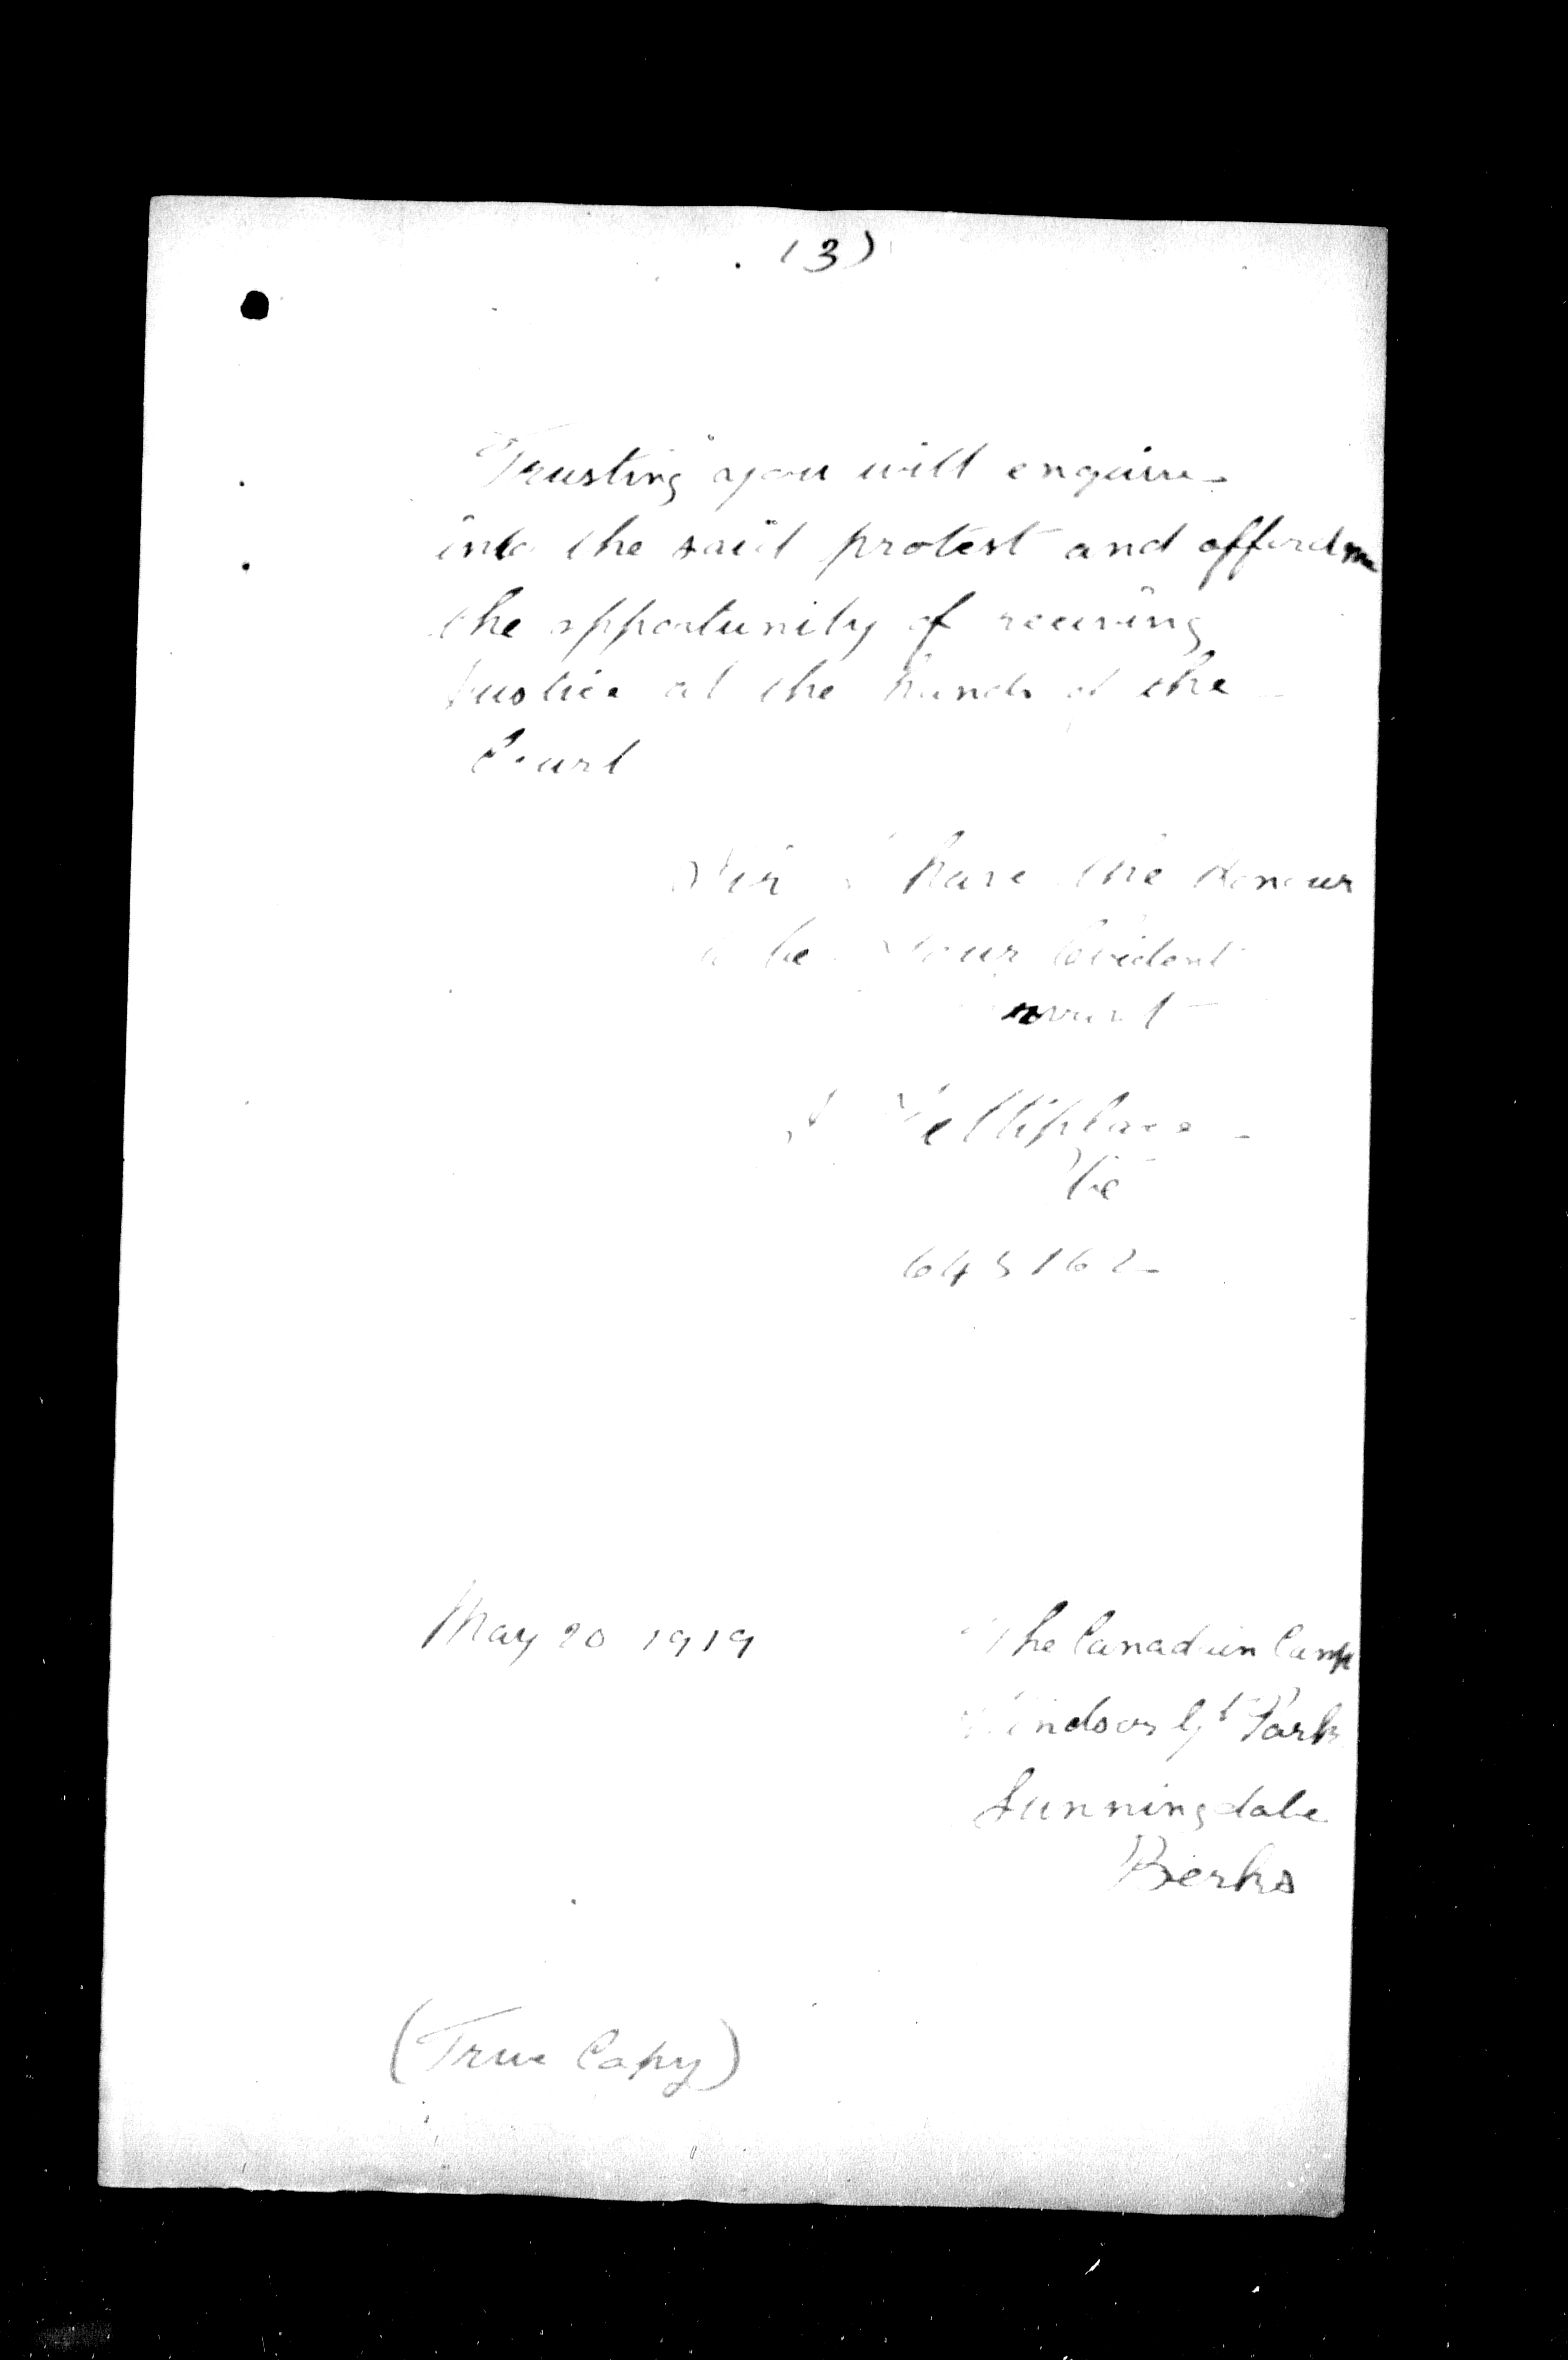 (3)
Trusting you will enquire
into the said protest and afford me
the opportunity of receiving
Justice at the hands of the
Court
Sir I have the Honour
to be Your Obedient
servant
Pte
645162
May 20 1919
The Canadian Camp
Windsor Gt Park
Sunningdale
Berks
(True Copy)